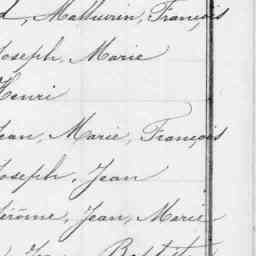 Mathurin, François
Joseph, Marie
Henri
Jean, Marie, François
Joseph, Jean
Jérôme, Jean, Marie